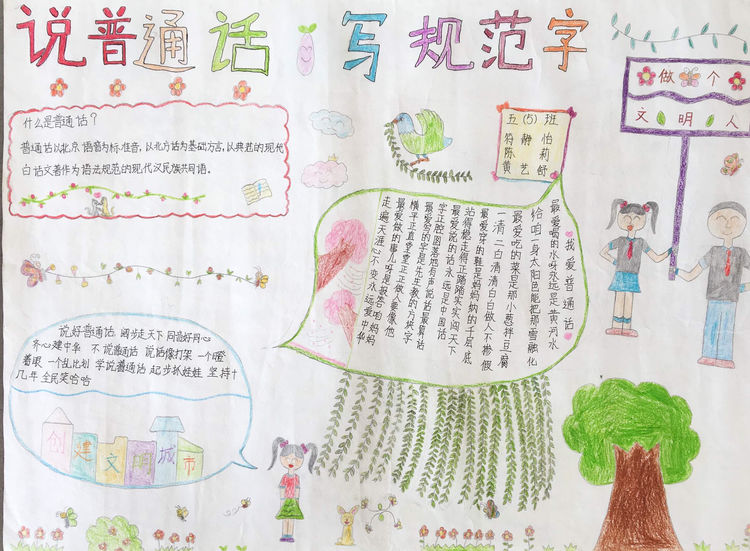 说普通话 写规范字
做个
文明人
什么是普通话？
普通话以北京语音为标准音，以北方话为基础方言，以典范的现代
白话文著作为语法规范的现代汉民族共同语。
五(5)班
符静怡
陈 莉
黄艺舒
我爱普通话
最爱喝的水呀永远是黄河水
给咱一身太阳色能把那雪融化
最爱吃的菜是那小葱拌豆腐
一清二白清清白白做人不掺假
最爱穿的鞋是妈妈纳的千层底
站得稳走得正踏踏实实闯天下
最爱说的话永远是中国话
字正腔圆落地有声说话最算话
最爱写的字是先生教的方块字
横平正直堂堂正正做人要像他
最爱做的事儿呀是报答咱妈妈
走遍天涯心不变永远爱中华
说好普通话 阔步走天下 同音好同心
齐心建中华 不说普通话 说话像打架 一个瞪
着眼 一个乱比划 学说普通话 起步抓娃娃 坚持十
几年 全民笑哈哈
创建文明城市